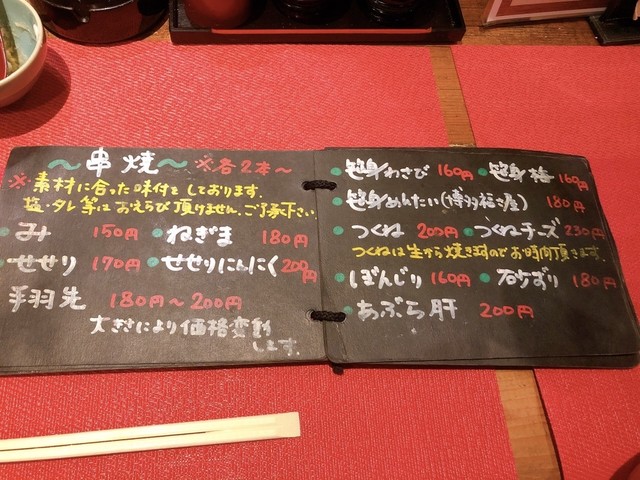 ～串焼～ ※各2本～
※素材に合った味付をしております。
塩・タレ等はおえらび頂けません。ご了承下さい
み 150円 ねぎま 180円
せせり 170円 せせりにんにく 200円
手羽先 180円～200円
大きさにより価格変動
します。
笹身わさび 160円 笹身梅 160円
笹身めんたい(博多福さ屋) 180円
つくね 200円 つくねチーズ 230円
つくねは生から焼きますのでお時間頂きます。
ぼんじり 160円 砂ずり 180円
あぶら肝 200円